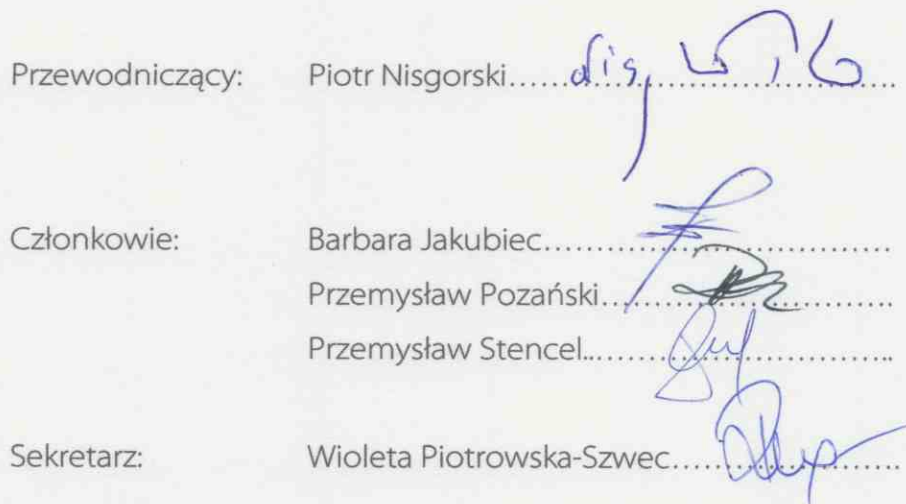 Przewodniczący: Piotr Nisgorski
Członkowie: Barbara Jakubiec
Przemysław Pozański
Przemysław Stencel
Sekretarz: Wioleta Piotrowska-Szwec